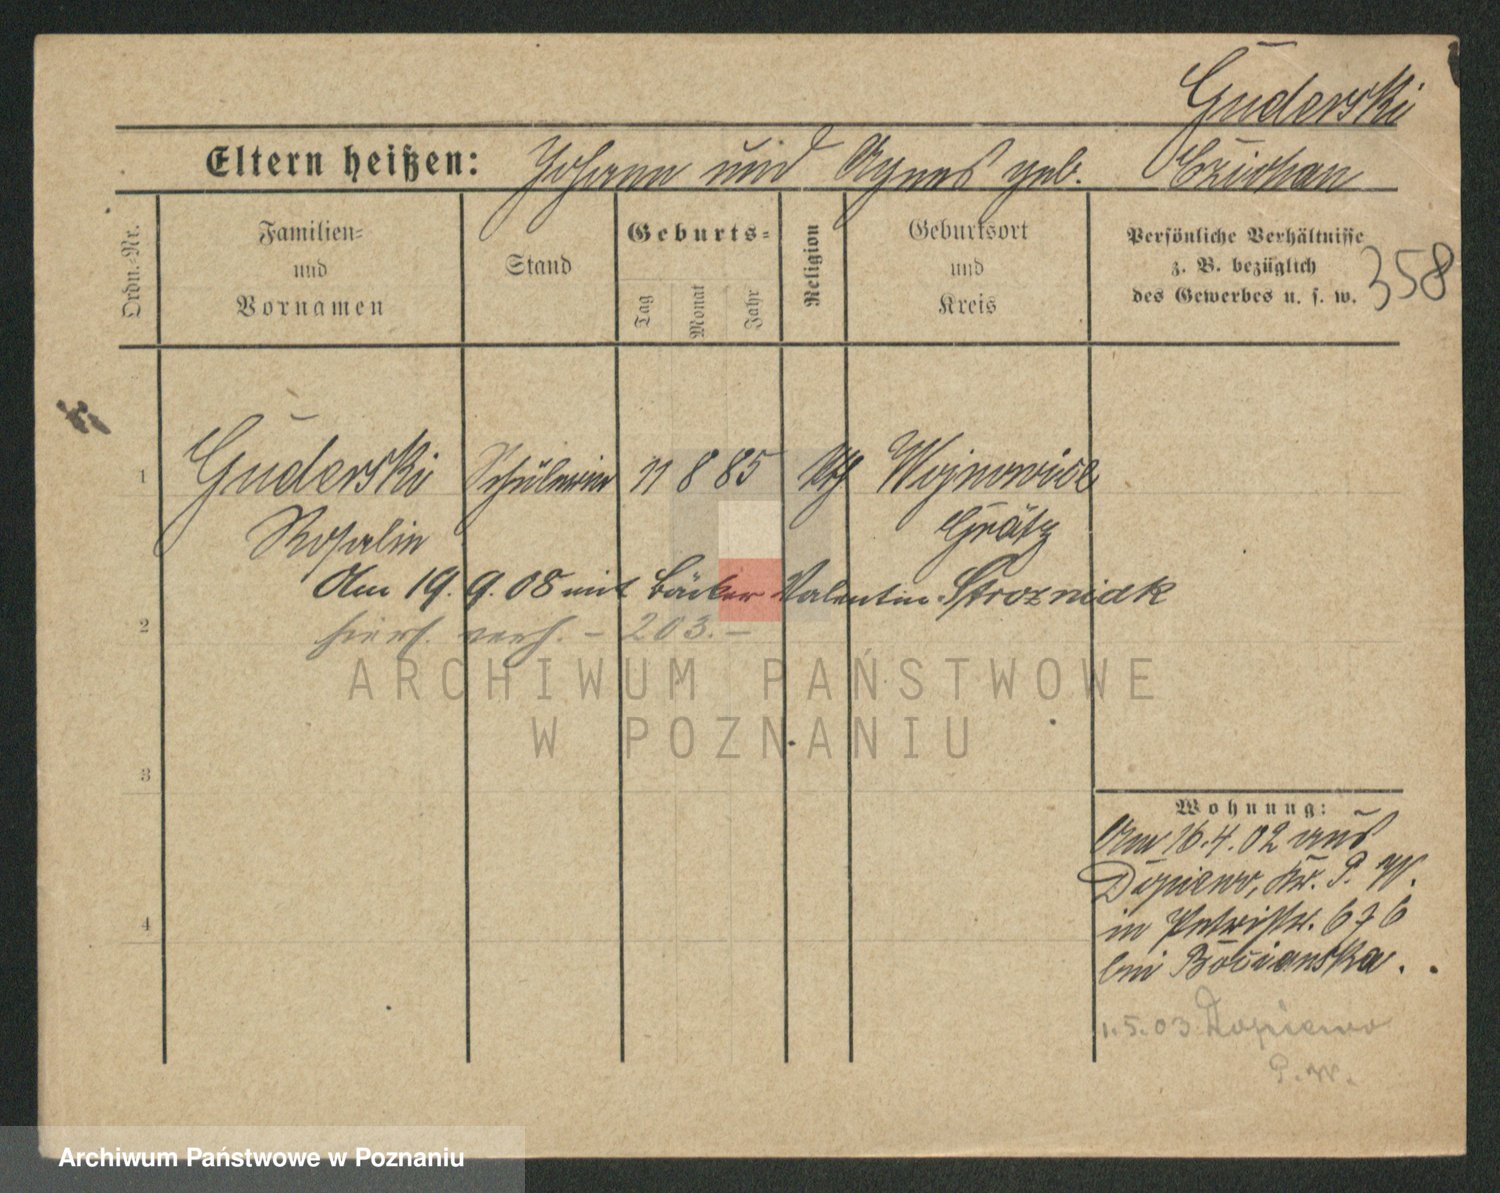 Guderski
Eltern heißen: Johann und Agnes geb. Czichan
Ordn.-Nr.
Familien-
und
Vornamen
Stand
Geburts-
Tag
Monat
Jahr
Religion
Geburtsort
und
Kreis
Persönliche Verhältnisse
z. B. bezüglich
des Gewerbes u. s. w.
358
1 Guderski Schülerin 11 8 85 kth Wojnowice
Rosalie Grätz
Am 19. 9. 08 mit Bäcker Valentin Strozniak
2 hiers. verh. – 203. –
3
4
Wohnung:
Am 16.4.02 aus
Dopiewo, Kr. P. W.
in Petristr. 6 b
bei Bocianska.
1.5.03 Dopiewo
P. W.
ARCHIWUM PAŃSTWOWE
W POZNANIU
Archiwum Państwowe w Poznaniu